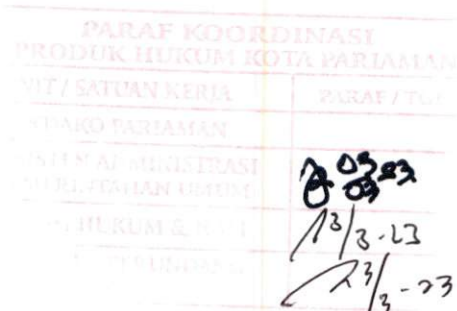 PARAF KOORDINASI
PRODUK HUKUM KOTA PARIAMAN
NIT / SATUAN KERJA PARAF / TGL
DAKO PARIAMAN
ISTEN ADMINISTRASI
MERINTAHAN UMUM
03 03 23
HUKUM &
3/3-23
3/3-23